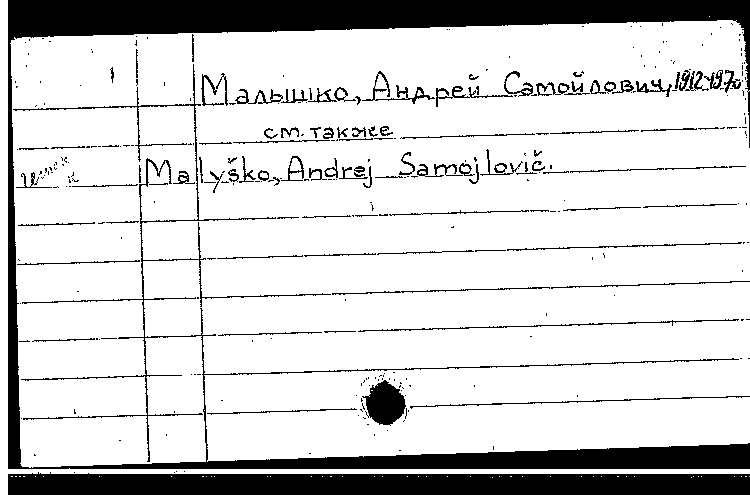 Малышко, Андрей Самойлович, 1912-1970
см. также
Malyško, Andrej Samojlovič.